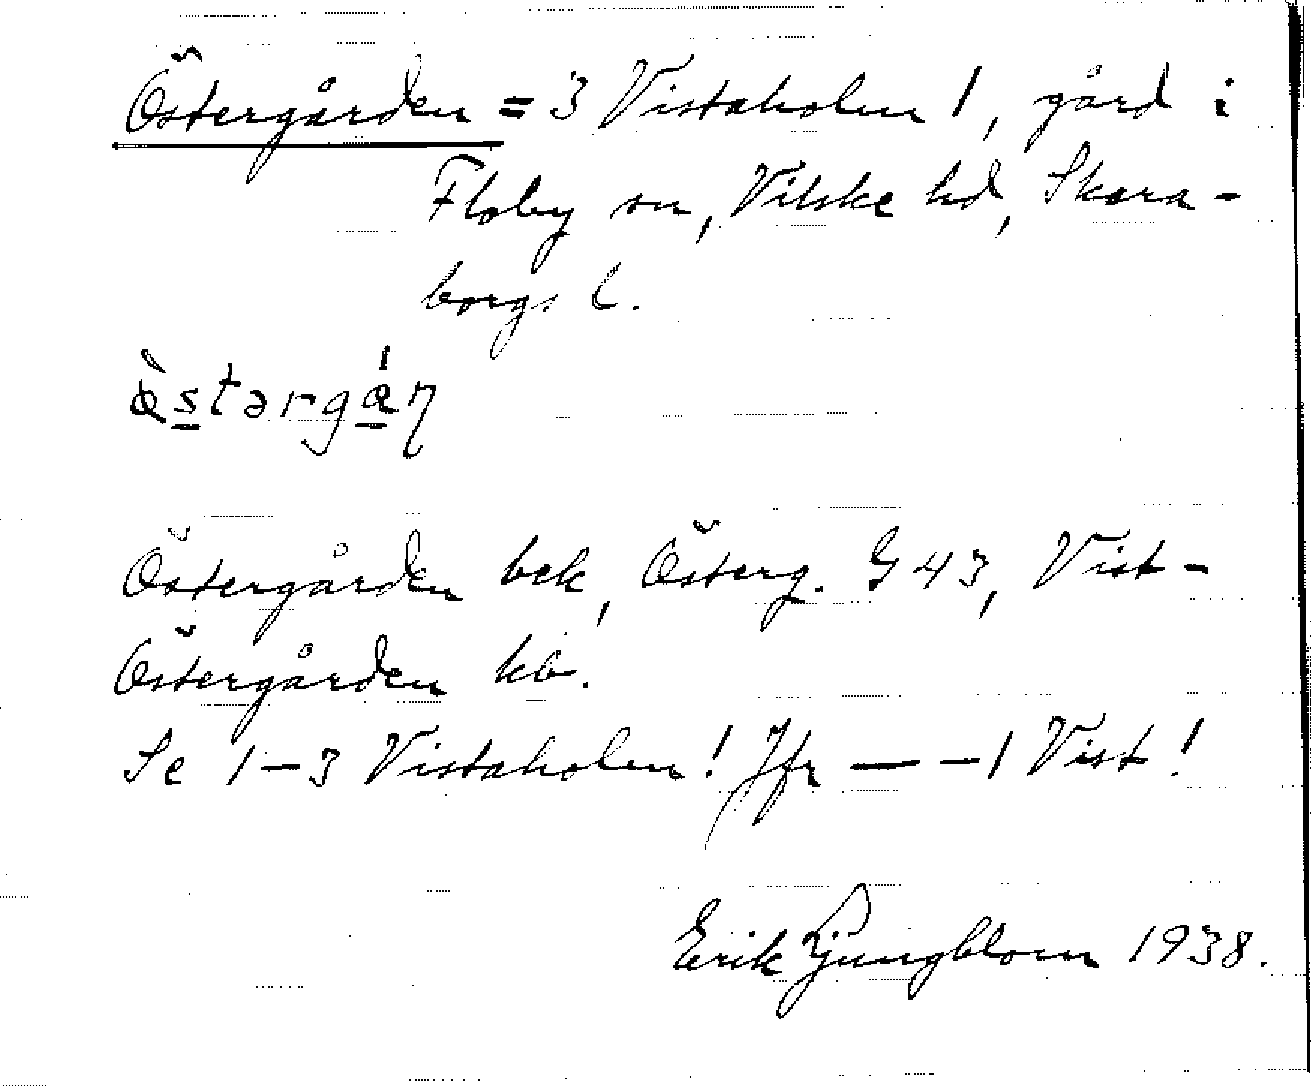 Östergården = 3 Vistaholen 1, gård i
Floby sn, Vilske hd, Skara-
borgs l.
Östergården bek, Österg. G 43, Vist-
Östergården kb.
Se 1–3 Vistaholen! Jfr — –1 Vist!
Erik Ljungblom 1938.